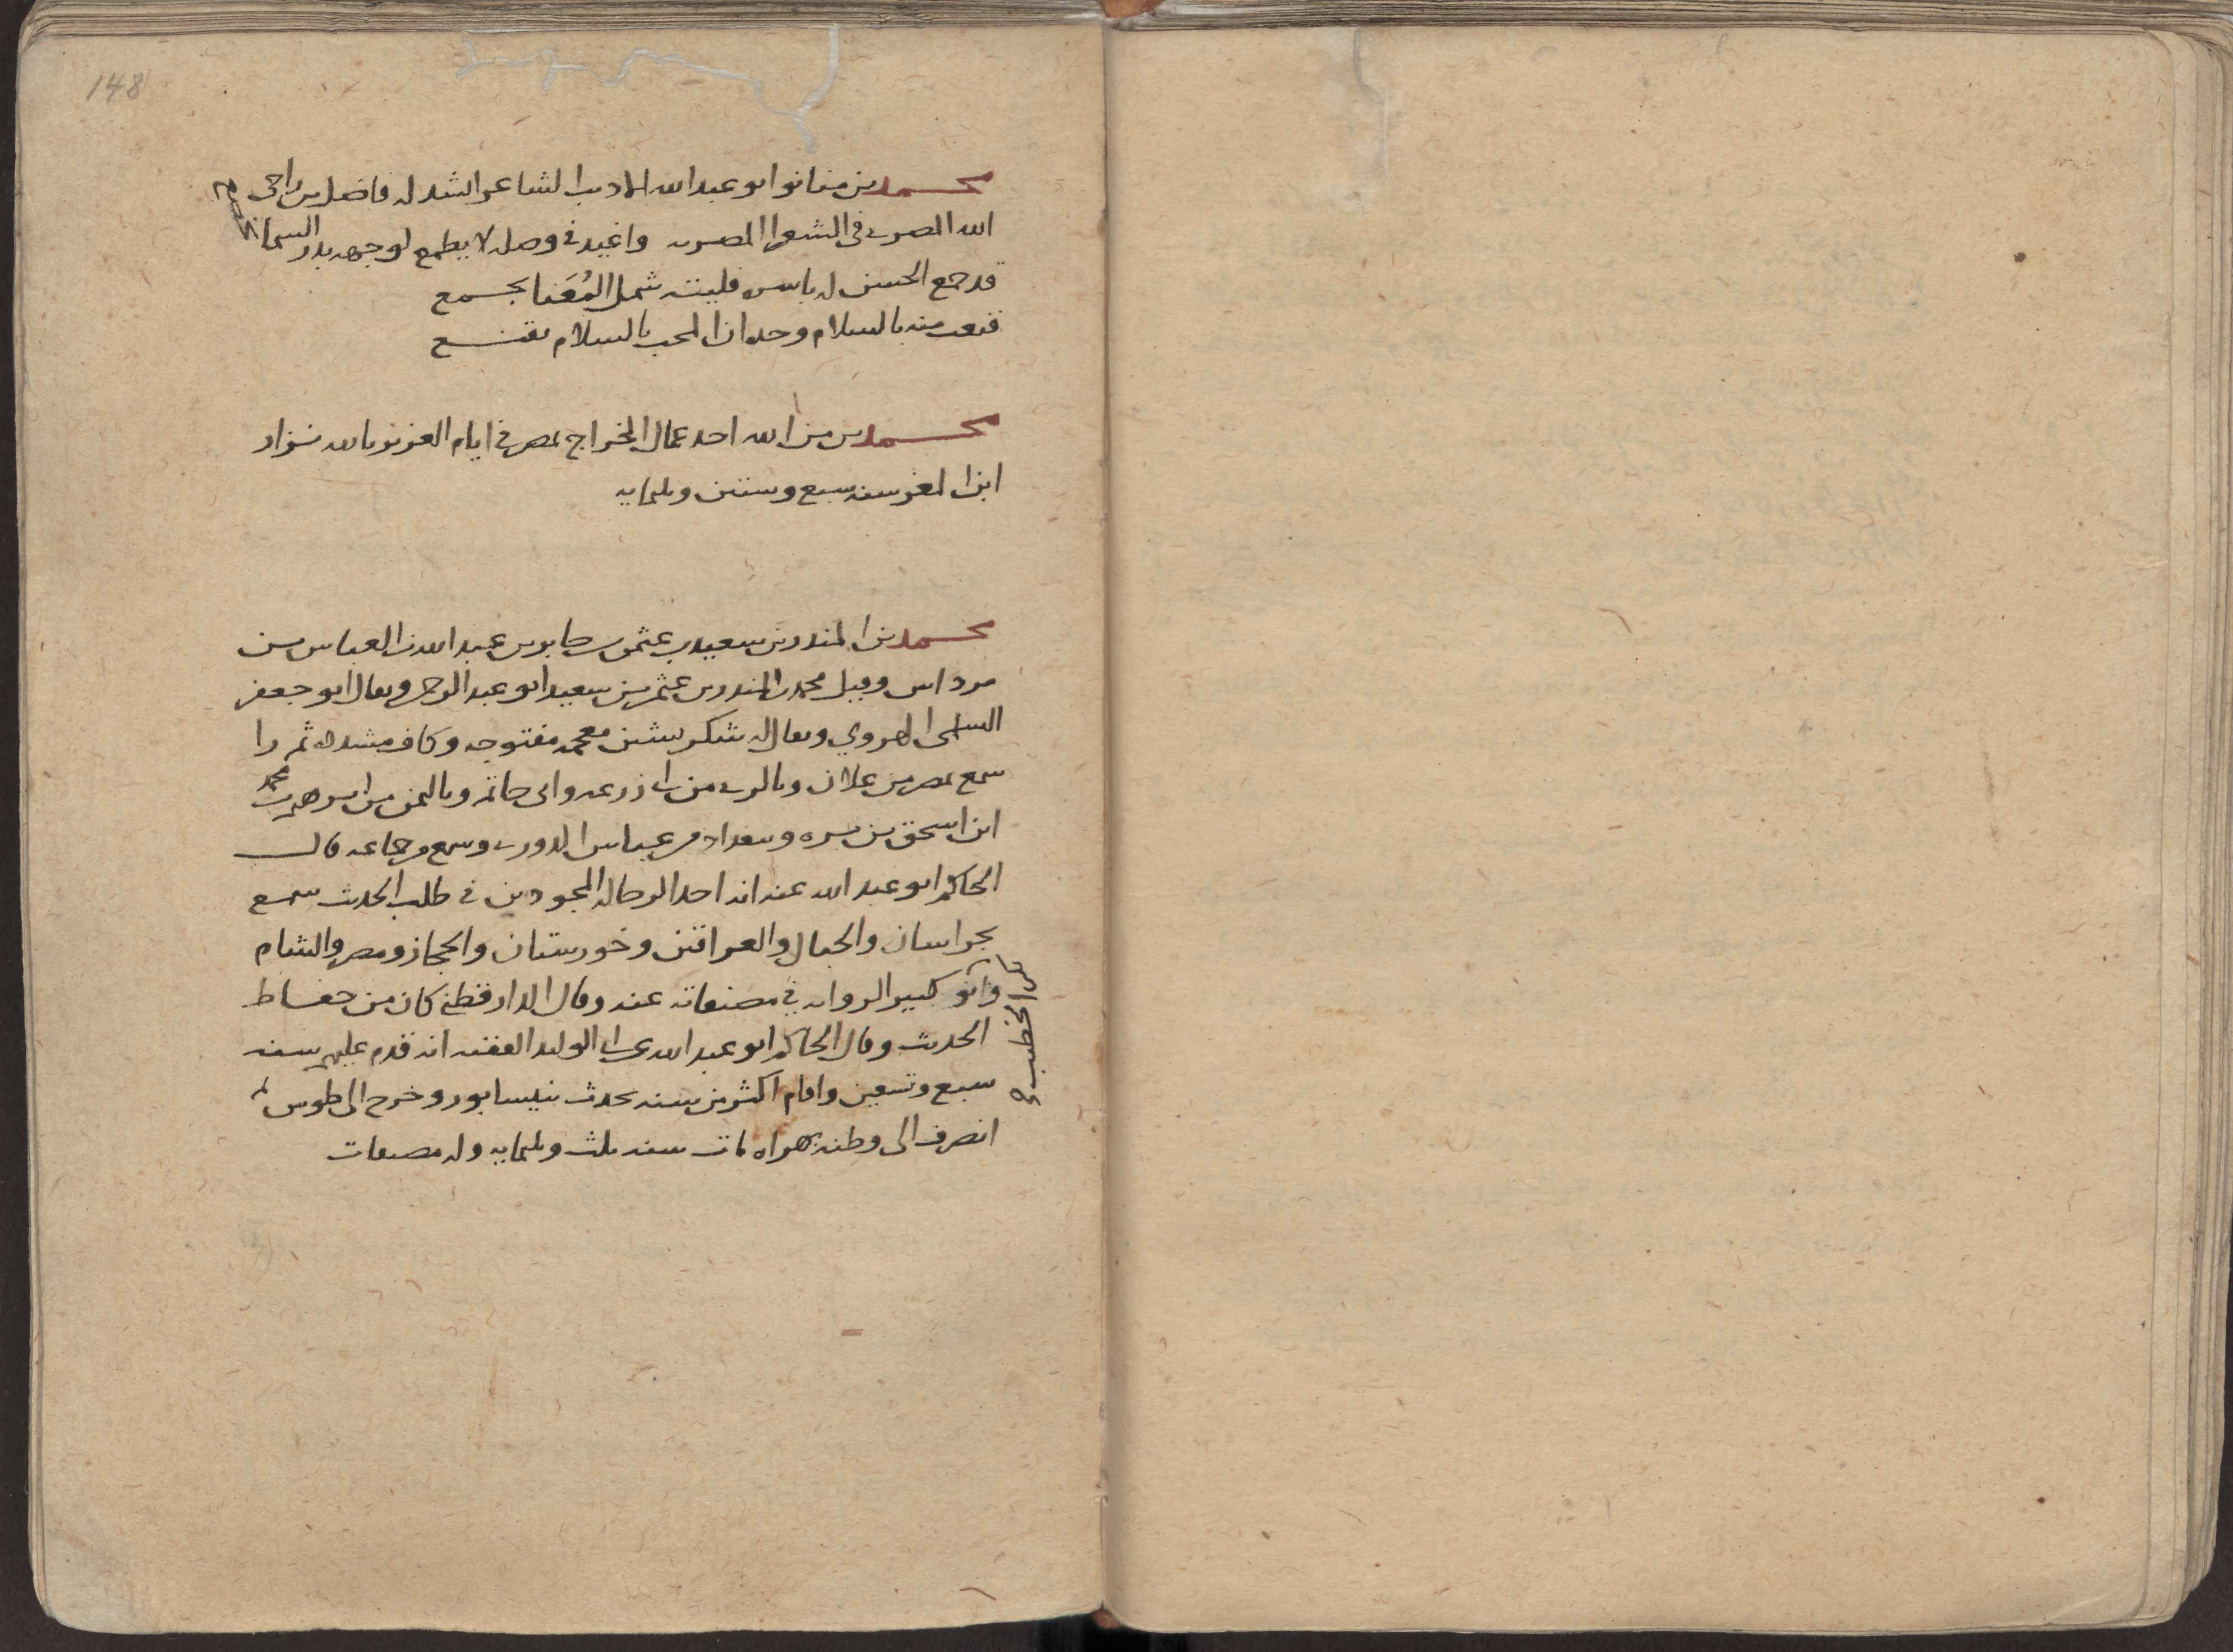 148
محمد بن مناذر ابو عبد الله الاديب الشاعر انشد له فاضل بن راجى
الله المصرى فى الشعرا المصريه واغيد فى وصله لا يطمع لوجهه بدر السما
قد جمع الحسن له باسره فليته شمل المُعَنا يجمع
قنعت منه بالسلام وحده ان المحب بالسلام يقنع
محمد بن من الله احد عمال الخراج بمصر فى ايام العزيز بالله نزار
ابن المعز سنه سبع وستين وثلثمايه
محمد بن المنذر بن سعيد بن عثمن بن جابر بن عبد الله بن العباس بن
مرداس وقيل محمد بن المنذر بن عثمن بن سعيد ابو عبد الرحمن ويقال ابو جعفر
السلمى الهروي ويقال له شكر بشين معجمه مفتوحه وكاف مشدده ثم را
سمع بمصر من علان وبالرى من ابى زرعه وابى حاتم وباليمن من ابرهيم بن محمد
ابن اسحق بن بره وببغداد من عباس الدورى وسمع من جماعه قال
الحاكم ابو عبد الله عنه انه احد الرحاله المجودين فى طلب الحديث سمع
بخراسان والجبال والعراقين وخورستان والحجاز ومصر والشام
كبير الروايه فى مصنفاته عنه وقال الدارقطنى كان من حفاظ
الحديث وقال الحاكم ابو عبد الله عن ابى الوليد الفقيه انه قدم عليهم سنه
سبع وتسعين واقام اكثر من سنه يحدث بنيسابور وخرج الى طوس ثم
انصرف الى وطنه بهراه مات سنه ثلث وثلثمايه وله مصنفات